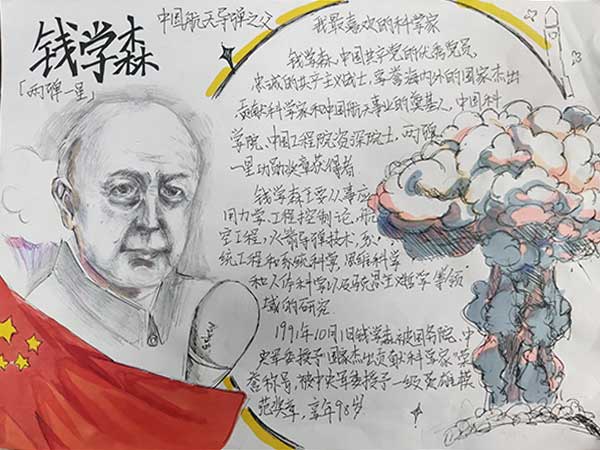 钱学森
中国航天导弹之父
「两弹一星」
我最喜欢的科学家
钱学森,中国共产党的优秀党员,
忠诚的共产主义战士,享誉海内外的国家杰出
贡献科学家和中国航天事业的奠基人,中国科
学院、中国工程院资深院士,两弹
一星功勋奖章获得者
钱学森主要从事应
用力学、工程控制论、航
空工程,火箭导弹技术,系
统工程和系统科学、思维科学
和人体科学以及马克思主义哲学等领
域的研究
1991年10月1日钱学森被国务院、中
央军委授予国家杰出贡献科学家"荣
誉称号,被中央军委授予一级英雄模
范奖章,享年98岁